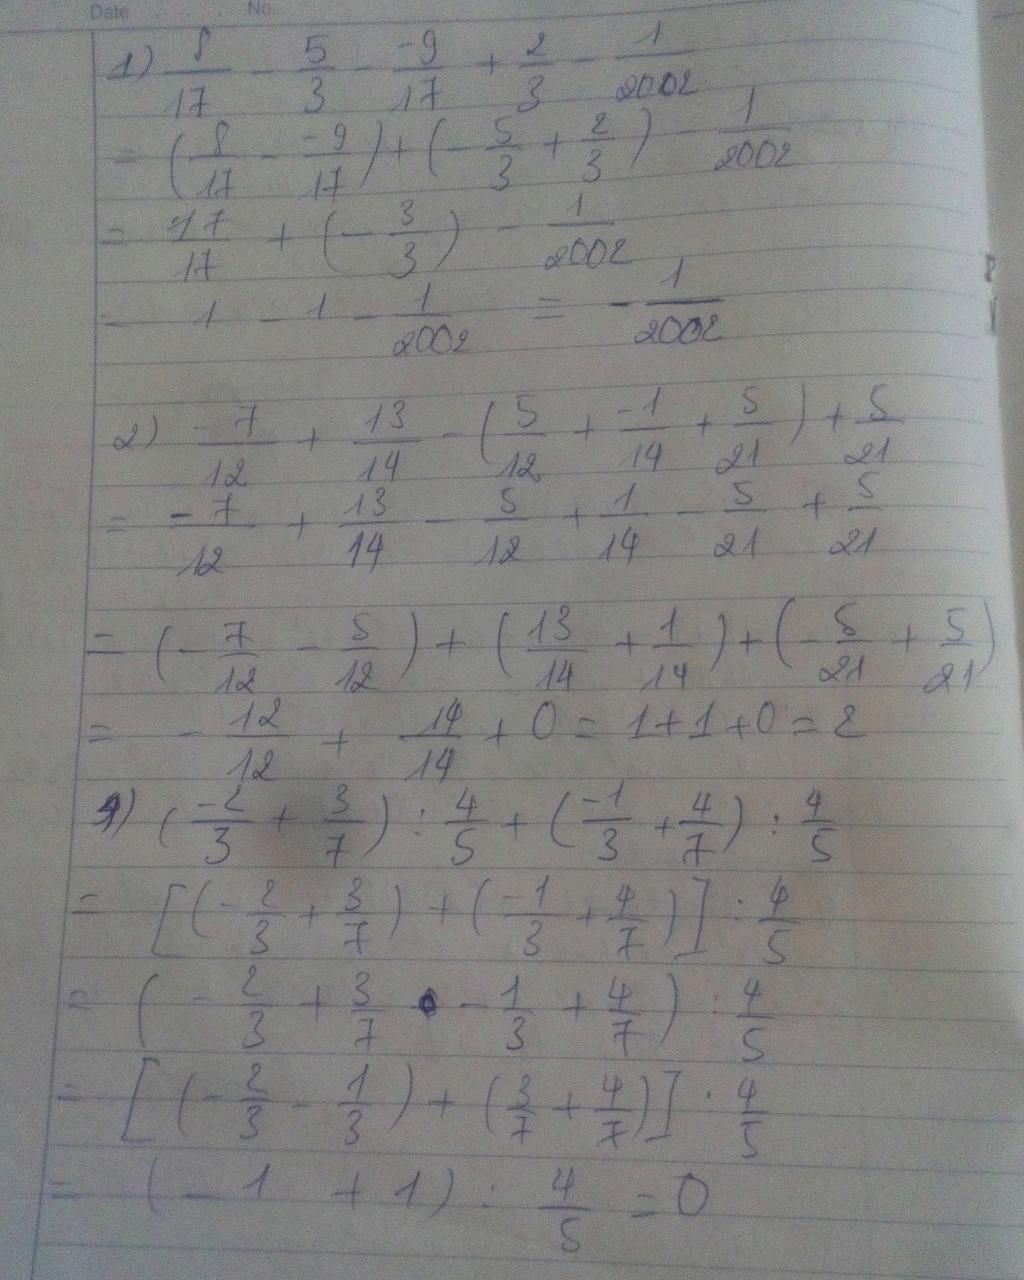 Date No.
1) 8/17 - 5/3 - -9/17 + 2/3 - 1/2002
= (8/17 - -9/17) + (-5/3 + 2/3) - 1/2002
= 17/17 + (-3/3) - 1/2002
= 1 - 1 - 1/2002 = -1/2002
2) -7/12 + 13/14 - (5/12 + -1/14 + 5/21) + 5/21
= -7/12 + 13/14 - 5/12 + 1/14 - 5/21 + 5/21
= (-7/12 - 5/12) + (13/14 + 1/14) + (-5/21 + 5/21)
= -12/12 + 14/14 + 0 = 1+1+0 = 2
4) (-2/3 + 3/7) : 4/5 + (-1/3 + 4/7) : 4/5
= [(-2/3 + 3/7) + (-1/3 + 4/7)] : 4/5
= (-2/3 + 3/7 - 1/3 + 4/7) : 4/5
= [(-2/3 - 1/3) + (3/7 + 4/7)] : 4/5
= (-1 + 1) : 4/5 = 0